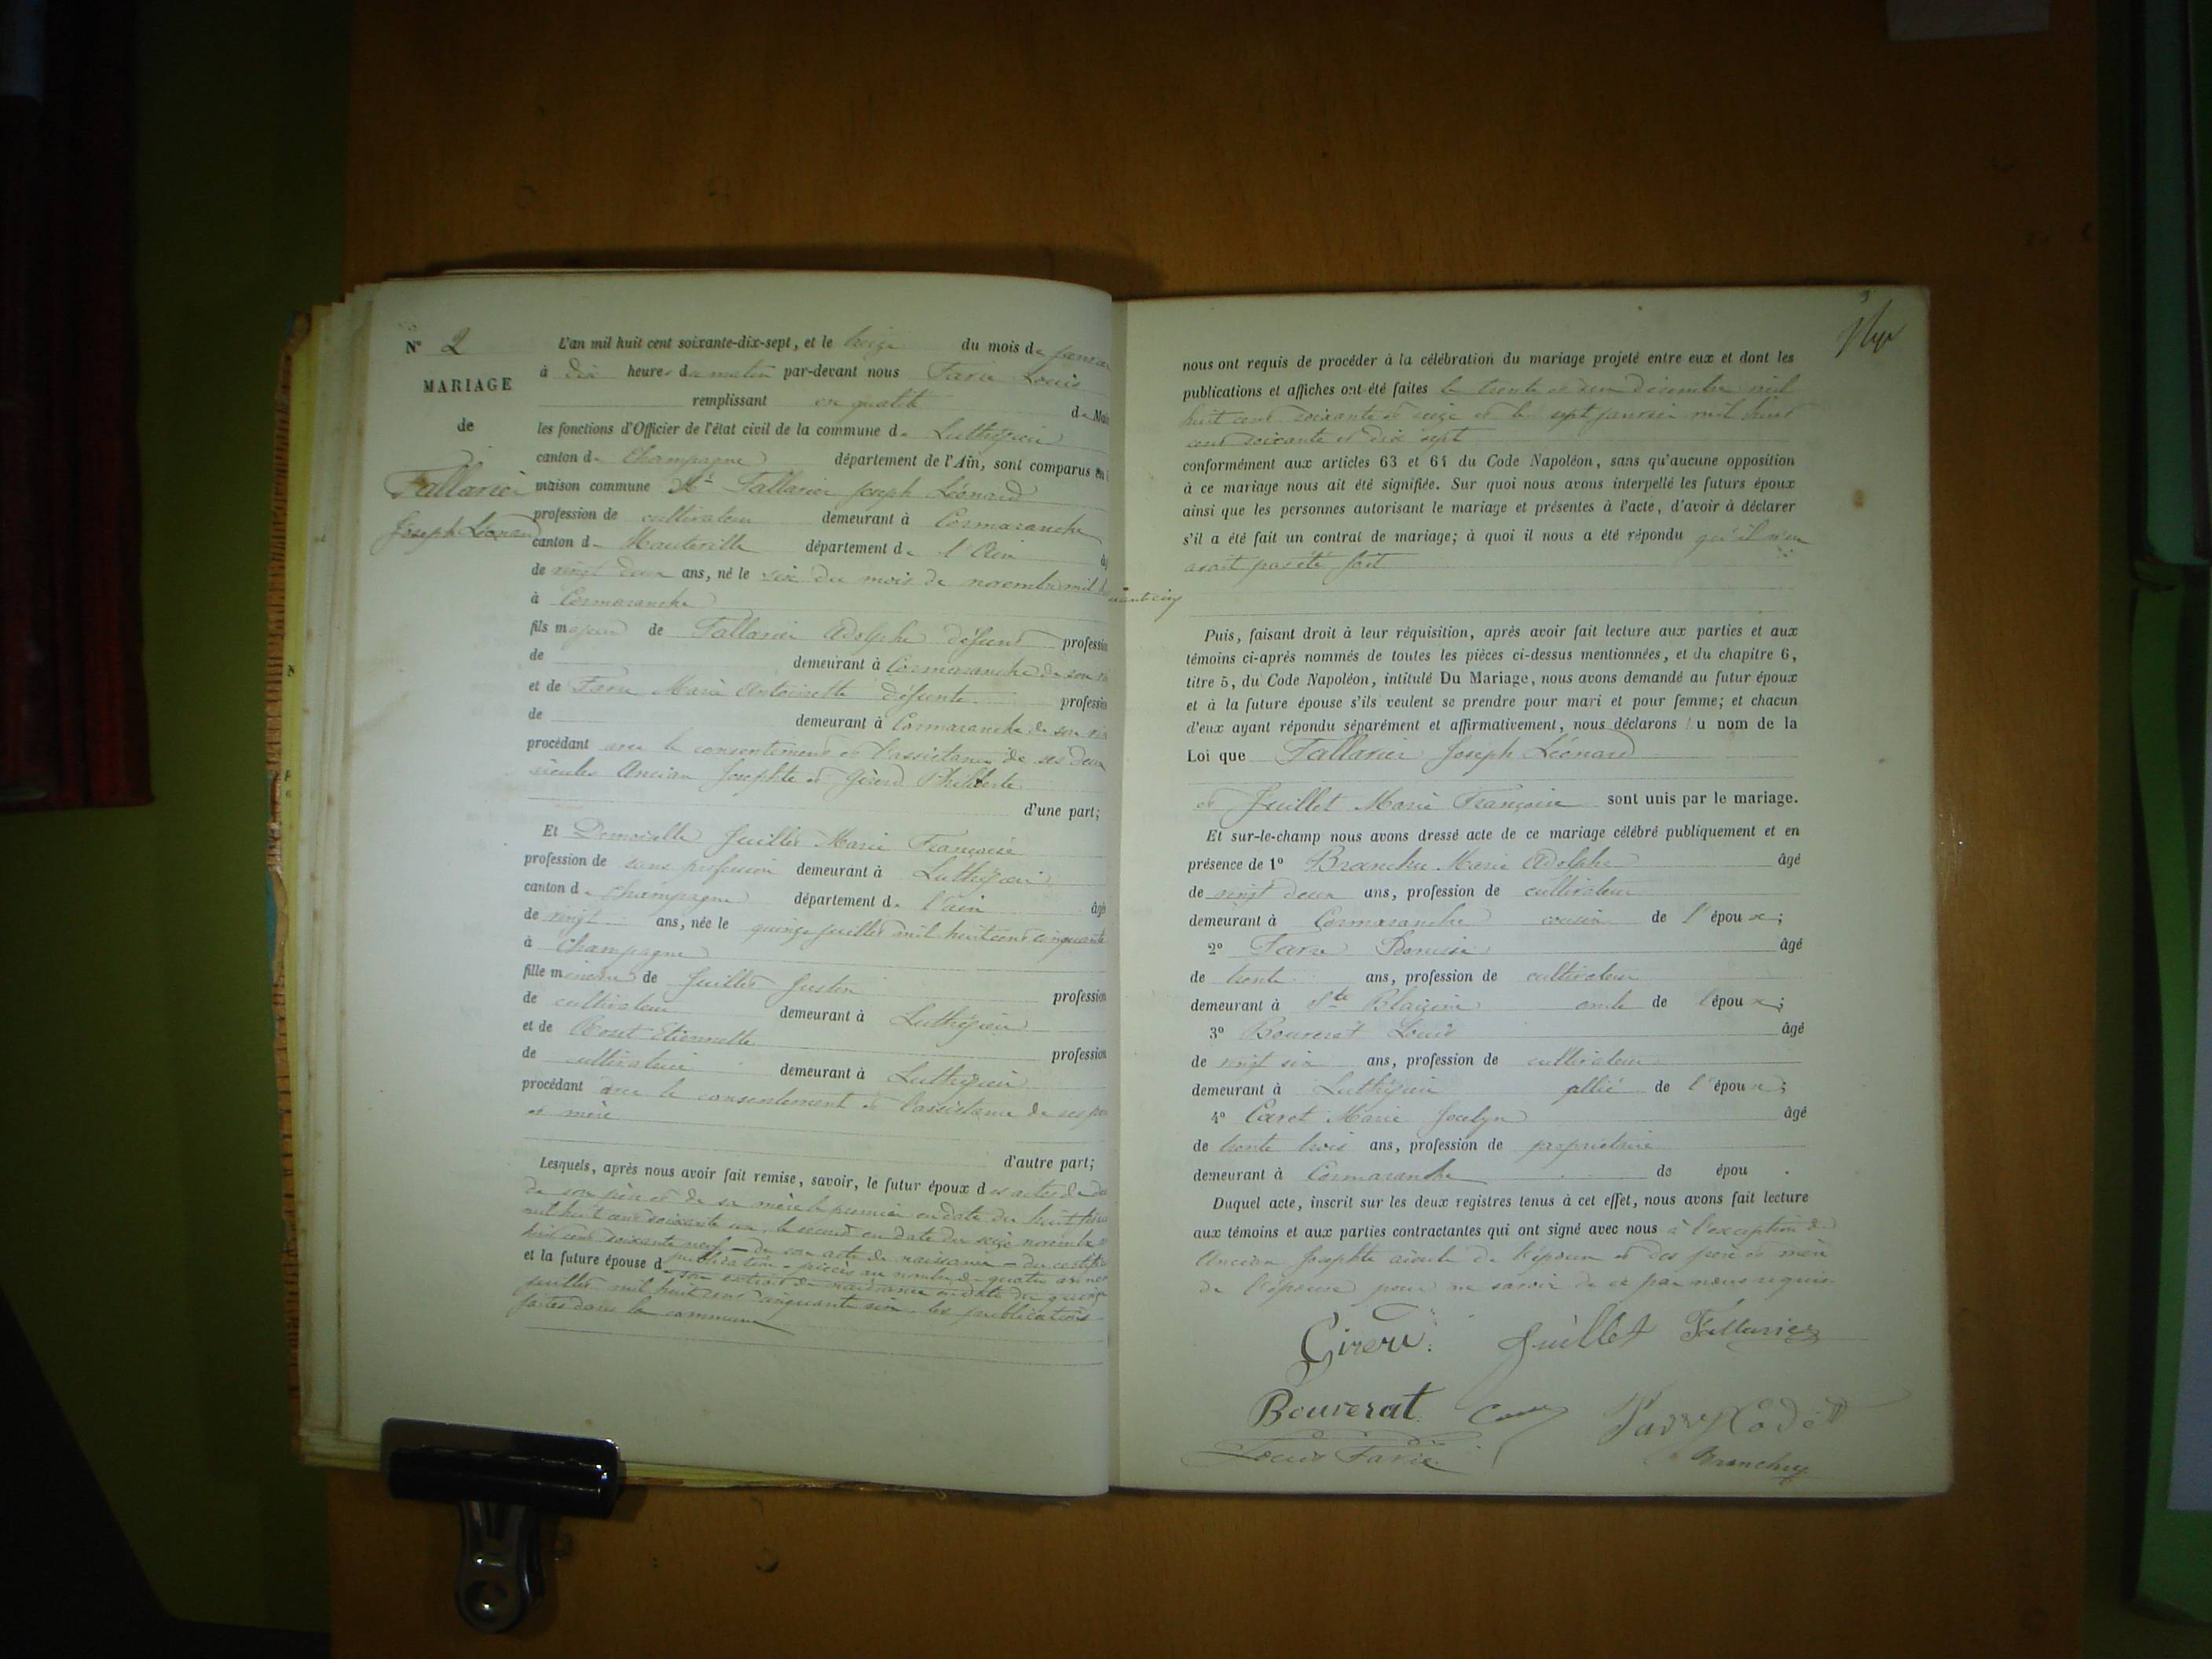 N° 2
MARIAGE
de
Fallavier
Joseph Léonard
L'an mil huit cent soixante-dix-sept, et le treize du mois de janvier
à dix heures du matin par-devant nous Favre Louis
remplissant en qualité de Maire
les fonctions d'Officier de l'état civil de la commune de Luthézieu
canton de Champagne département de l'Ain, sont comparus en
maison commune Fallavier Joseph Léonard
profession de cultivateur demeurant à Cormaranche
canton d. Hauteville département de l'Ain
de vingt deux ans, né le six du mois de novembre mil
à Cormaranche
fils majeur de Fallavier Adolphe défunt profession
de demeurant à Cormaranche de son
et de Favre Marie Antoinette défunte profession
de demeurant à Cormaranche de son
procédant avec le consentement et l'assistance de ses deux
aieules Ancian Josephte et Girerd Philiberte
d'une part;
Et Demoiselle Juillet Marie Françoise
profession de sans profession demeurant à Luthézieu
canton de Champagne département de l'ain âgée
de vingt ans, née le quinze juillet mil huit cent cinquante
à Champagne
fille mineure de Juillet Justin profession
de cultivateur demeurant à Luthézieu
et de Etiennette profession
de cultivatrice demeurant à Luthézieu
procédant avec le consentement et l'assistance de ses père
et mère
d'autre part;
Lesquels, après nous avoir fait remise, savoir, le futur époux des actes de
de son père et de sa mère le premier en date du huit
mil huit cent soixante un, le second en date du seize novembre
huit cent soixante neuf - de son acte de naissance - du certificat
publication - pièces au nombre de quatre
et la future épouse d son extrait de naissance en date du quinze
juillet mil huit cent cinquante six - les publications
faites dans la commune
nous ont requis de procéder à la célébration du mariage projeté entre eux et dont les
publications et affiches ont été faites le trente et un décembre mil
huit cent soixante et seize et le sept janvier mil huit
cent soixante et dix sept
conformément aux articles 63 et 64 du Code Napoléon, sans qu'aucune opposition
à ce mariage nous ait été signifiée. Sur quoi nous avons interpellé les futurs époux
ainsi que les personnes autorisant le mariage et présentes à l'acte, d'avoir à déclarer
s'il a été fait un contrat de mariage; à quoi il nous a été répondu qu'il n'en
avait pas été fait
Puis, faisant droit à leur réquisition, après avoir fait lecture aux parties et aux
témoins ci-après nommés de toutes les pièces ci-dessus mentionnées, et du chapitre 6,
titre 5, du Code Napoléon, intitulé Du Mariage, nous avons demandé au futur époux
et à la future épouse s'ils veulent se prendre pour mari et pour femme; et chacun
d'eux ayant répondu séparément et affirmativement, nous déclarons au nom de la
Loi que Fallavier Joseph Léonard
et Juillet Marie Françoise sont unis par le mariage.
Et sur-le-champ nous avons dressé acte de ce mariage célébré publiquement et en
présence de 1° Branchu Marie Adolphe âgé
de vingt deux ans, profession de cultivateur
demeurant à Cormaranche cousin de l'époux;
2° Favre âgé
de trente ans, profession de cultivateur
demeurant à Ste Blaizine oncle de l'époux;
3° Bouverat Louis âgé
de vingt six ans, profession de cultivateur
demeurant à Luthézieu allié de l'époux;
4° Carret Marie Jocelyn âgé
de trente trois ans, profession de propriétaire
demeurant à Cormaranche de épou .
Duquel acte, inscrit sur les deux registres tenus à cet effet, nous avons fait lecture
aux témoins et aux parties contractantes qui ont signé avec nous à l'exception de
Ancian Josephte aieule de l'époux et des père et mère
de l'épouse pour ne savoir de ce par nous requis
Girerd Juillet Fallavier
Bouverat
Louis Favre Branchu